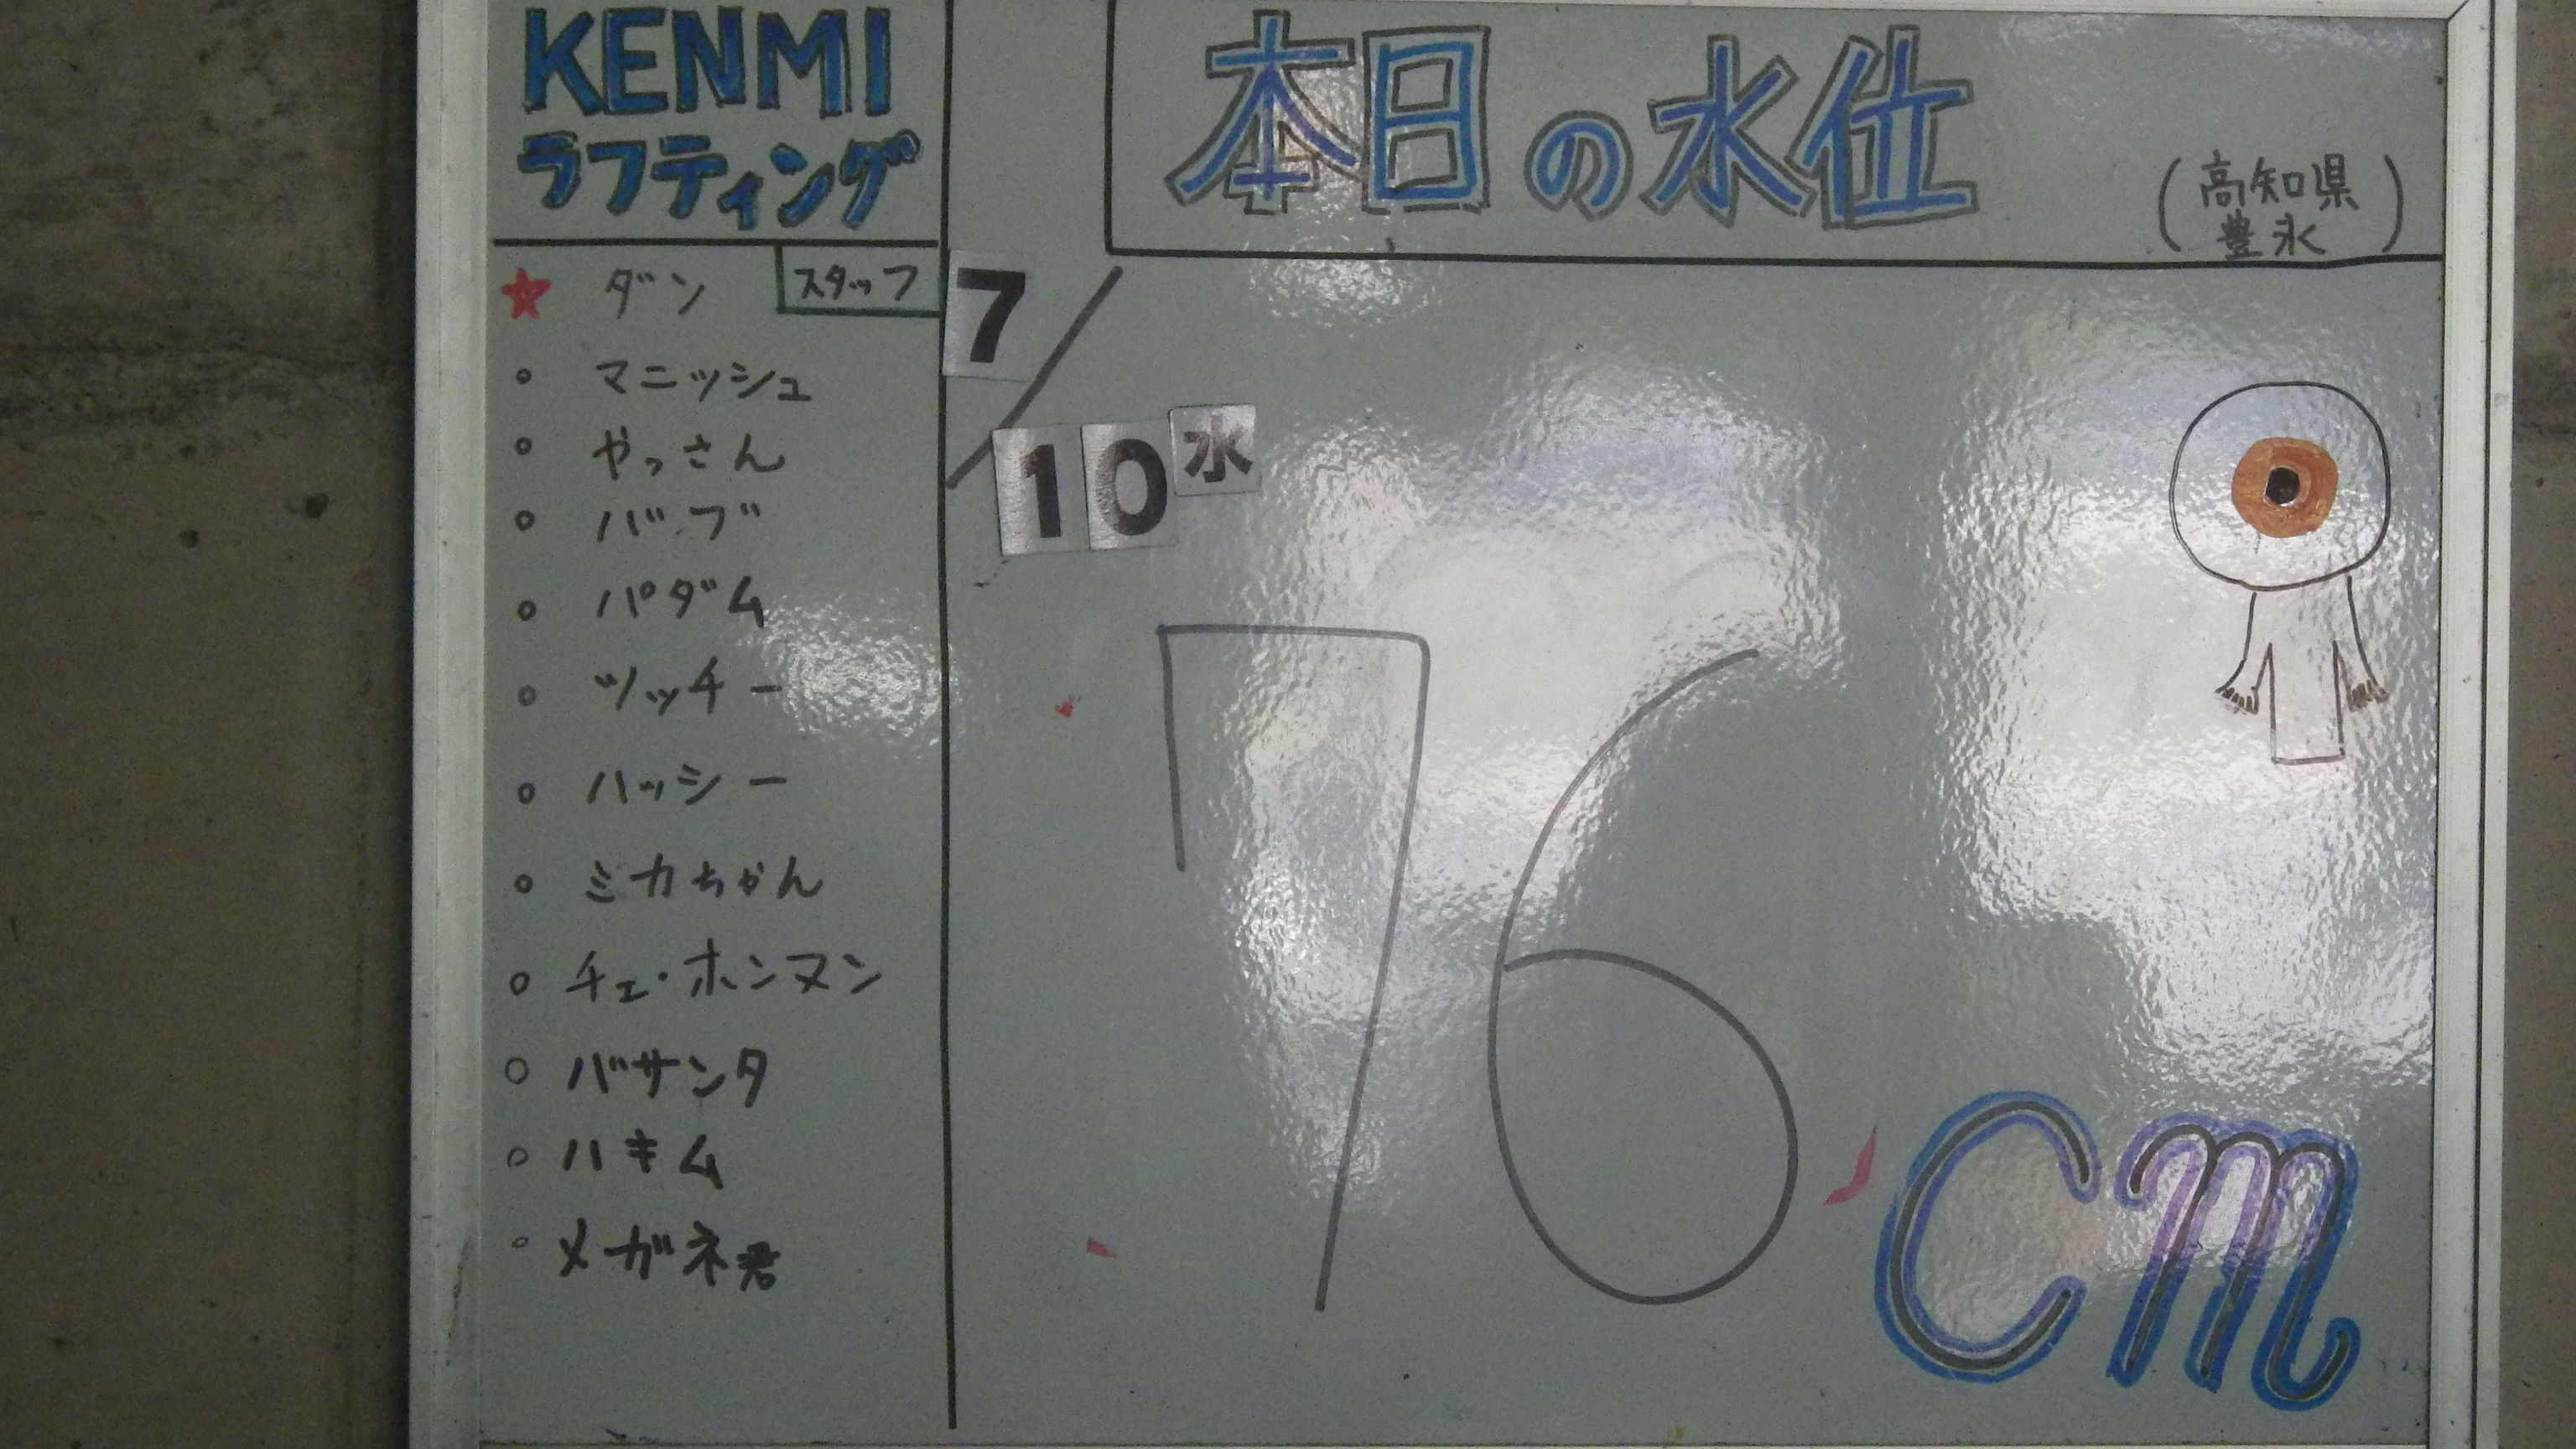 KENMI
ラフティング
スタッフ
★ ダン
○ マニッシュ
○ やっさん
○ バブ
○ パダム
○ ツッチー
○ ハッシー
○ ミカちゃん
○ チェ・ホンマン
○ バサンタ
○ ハキム
○ メガネ君
本日の水仕
(高知県
豊永)
7/10 水
76cm